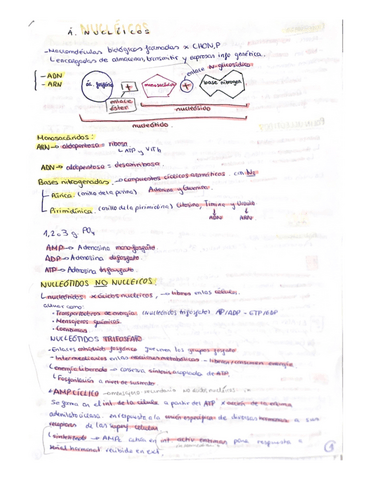 Á. NUCLÉICOS
- Macromoléculas biológicas formadas x CHON,P
↳ encargadas de almacenar, transmitir y expresar info genética.
- ADN
- ARN
enlace N-glucosídico
ác. fosfórico + monosacárido + base nitrogen.
enlace éster
nucleósido
nucleótido
Monosacáridos:
ARN → aldopentosa = ribosa
↳ ATP y VitB
ADN → aldopentosa = desoxirribosa
Bases nitrogenadas → compuestos cíclicos aromáticos. con N
- Púrica (anillo de la purina) Adenina y Guanina
- Pirimidínica (anillo de la pirimidina) Citosina, Timina y Uracilo
ADN ARN
1, 2 o 3 g PO4
AMP → Adenosina monofosfato
ADP → Adenosina difosfato
ATP → Adenosina trifosfato
NUCLEÓTIDOS NO NUCLEICOS:
↳ nucleótidos x ácidos nucleicos, → libres en las células.
actúan como:
- Transportadores de energía (nucleótidos trifosfato) ATP/ADP - GTP/GDP
- Mensajeros químicos
- Coenzimas
NUCLEÓTIDOS TRIFOSFATO
- Enlaces anhídrido fosfórico que unen los grupos fosfato
- Intermediarios en las reacciones metabólicas - liberan/consumen energía
↳ energía liberada → cataliza síntesis acoplada de ATP
↳ Fosforilación a nivel de sustrato
* AMP CÍCLICO
Se forma en el int. de la célula a partir del ATP x acción de la enzima
adenilato ciclasa en respuesta a la unión específica de diversas hormonas a sus
receptores de las superf. celulares
→ AMPc actúa en int. activ. enzimas para respuesta a
señal hormonal recibida en ext.